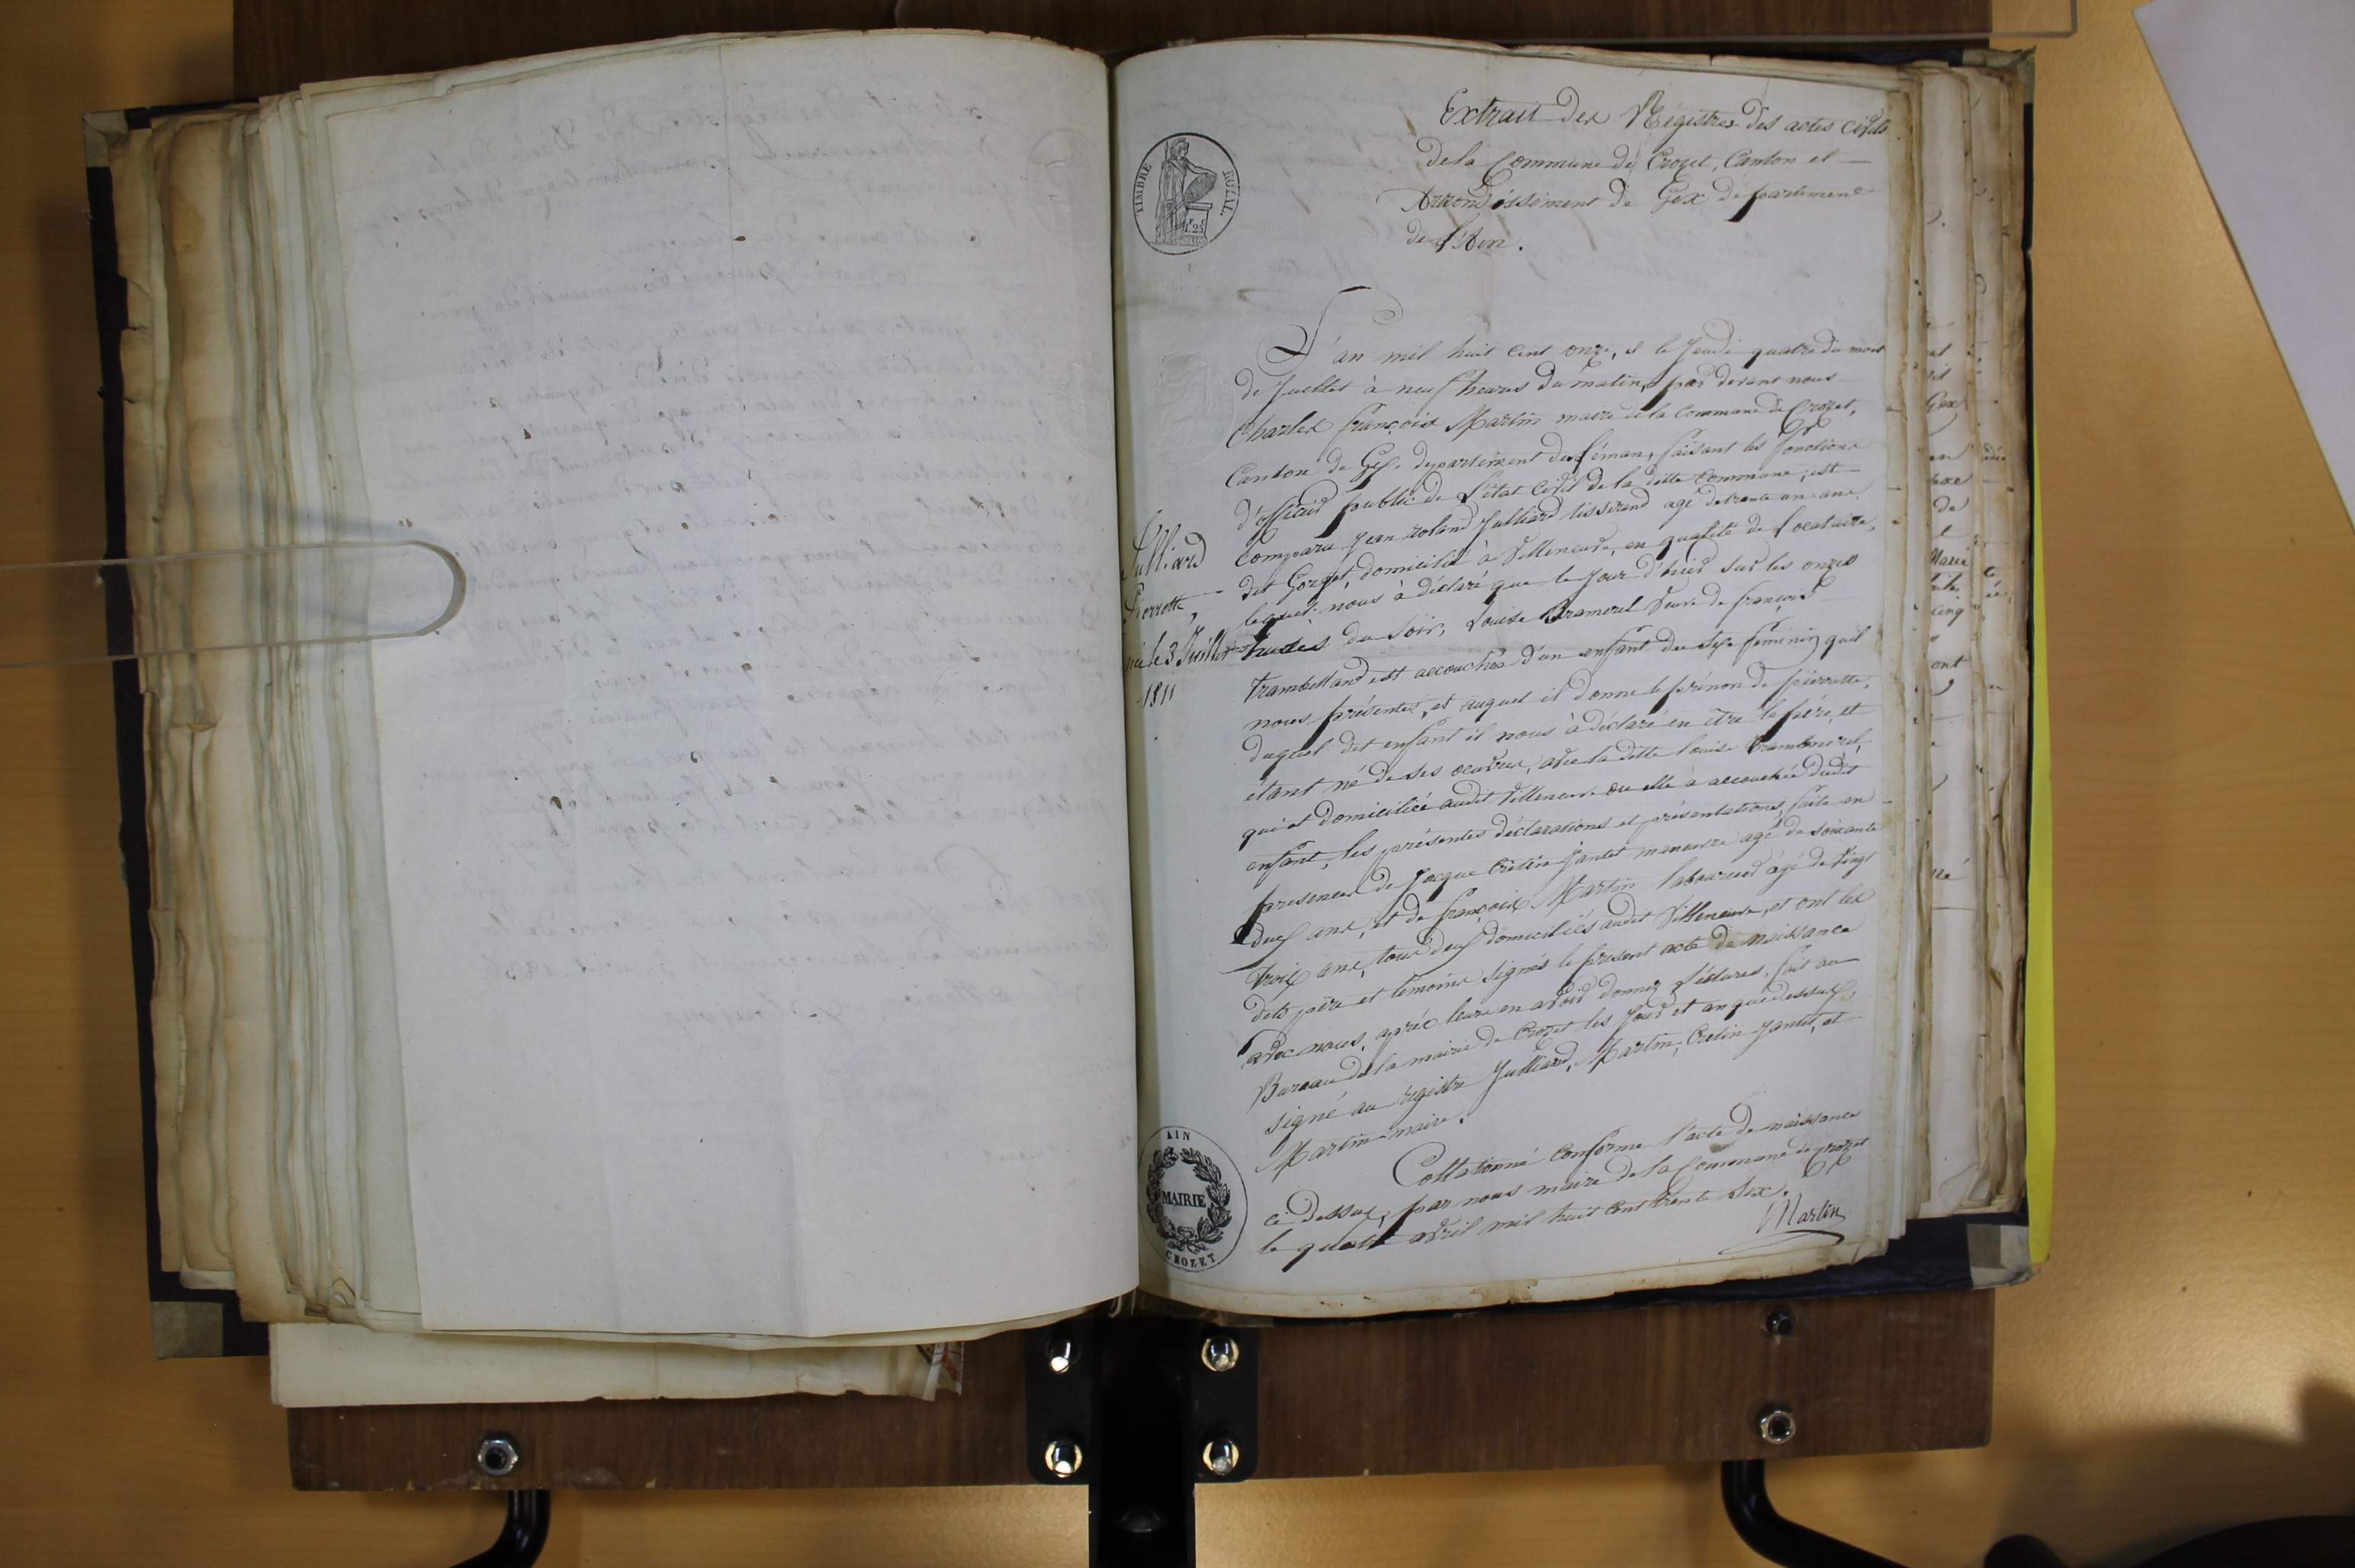 Extrait des Régistres des actes civils
de la Commune de Crozet, Canton et
Arrondissement de Gex département
de l'Ain.
TIMBRE ROYAL.
L'an mil huit cent onze, et le Jeudi quatre du mois
de Juillet à neuf heures du matin, par devant nous
Charles François Martin maire de la Commune de Crozet,
Canton de Gex, departement du Léman, faisant les fonctions
d'officier public de l'état civil de la ditte Commune; est
comparu Jean roland Julliard tisserand agé de trante un ans
dit Gozet, domicilié à Villeneuve, en qualité de locataire,
lequel nous à déclaré que le jour d'hier sur les onzes
heures du Soir, Louise Bramerel veuve de françois
Julliard
Pierrette,
née le 3 Juillet
1811
Trambelland est accouchée d'un enfant du sexe feminin qu'il
nous présentes, et auquel il donne le prénon de pierrette,
duquel dit enfant il nous à déclaré en être le père, et
étant né de ses oeuvres, avec la ditte Louise Bramerel,
qui est domiciliée audit Villeneuve ou elle à accouchée dudit
enfant, les présentes déclarations et présentations, faite en
presences de Jacque Crétin Jantet manœuvre agé de soixante
deuf ans, et de françois Martin laboureur âgé de vingt
trois ans, tous deuf domiciliés audit Villeneuve, et ont les
dits père et temoins signés le present acte de naissance
avec nous, après leurs en avoir donnez lectures, fait au
Bureau de la mairie de Crozet les jour et an que dessus,
signé au régistre Julliard, Martin, Cretin Jantet, et
Martin maire.
Collationné conforme l'acte de naissance
ci dessus, par nous maire de la Commune de Crozet
le quatre avril mil huit cent trente six.
Martin
AIN
MAIRIE
CROZET